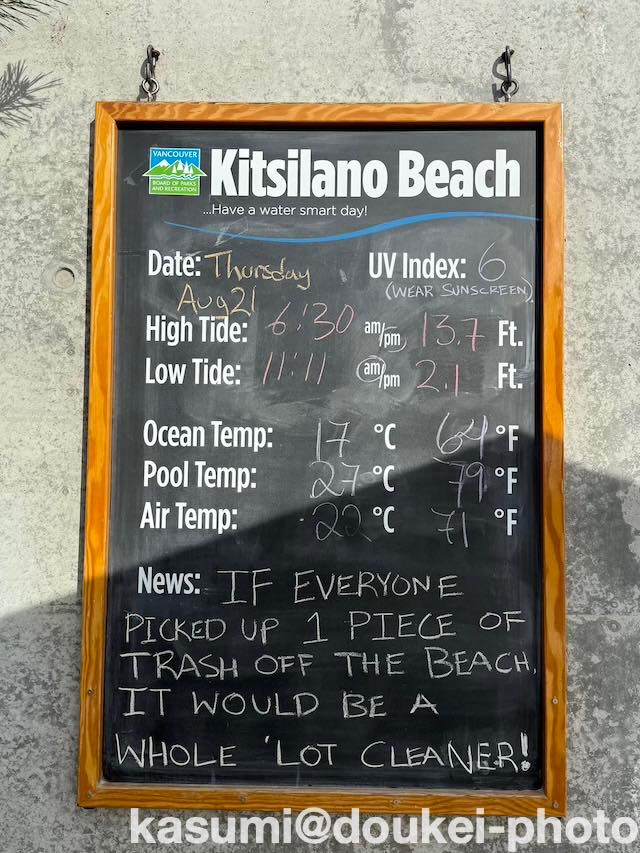 VANCOUVER
BOARD OF PARKS
AND RECREATION
Kitsilano Beach
...Have a water smart day!
Date: Thursday UV Index: 6
Aug 21 (WEAR SUNSCREEN)
High Tide: 6:30 am/pm 13.7 Ft.
Low Tide: 11:11 am/pm 2.1 Ft.
Ocean Temp: 17 °C 64 °F
Pool Temp: 27 °C 79 °F
Air Temp: 22 °C 71 °F
News: IF EVERYONE
PICKED UP 1 PIECE OF
TRASH OFF THE BEACH,
IT WOULD BE A
WHOLE 'LOT CLEANER!
kasumi@doukei-photo